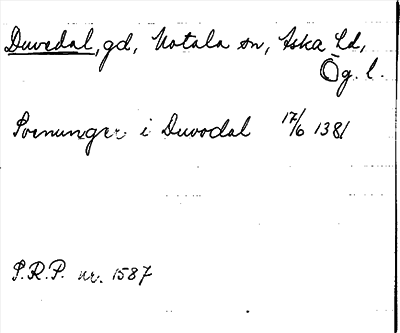 Duvedal, gd, Motala sn, Aska hd,
Ög. l.
Poenunger i Duvodal 17/6 1381
S.R.P. nr. 1587